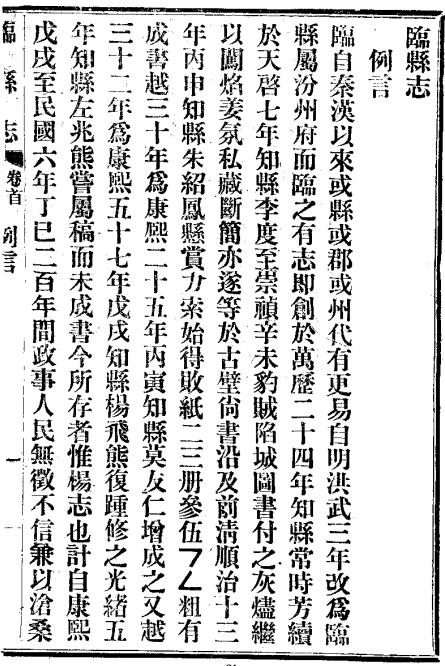 臨縣志
例言
臨自秦漢以來或縣或郡或州代有更易自明洪武三年改爲臨
縣屬汾州府而臨之有志即創於萬歷二十四年知縣常時芳續
於天啓七年知縣李度至崇禎辛未豹賊陷城圖書付之灰燼繼
以闖焰姜氛私藏斷簡亦遂等於古壁尙書沿及前淸順治十三
年丙申知縣朱紹鳳縣賞力索始得敗紙二三册參伍フㄥ粗有
成書越三十年爲康熙二十五年丙寅知縣莫友仁增成之又越
三十二年爲康熙五十七年戊戌知縣楊飛熊復踵修之光緒五
年知縣左兆熊嘗屬稿而未成書今所存者惟楊志也計自康熙
戊戌至民國六年丁巳二百年間政事人民無徵不信兼以滄桑
臨縣志 卷首 例言 一